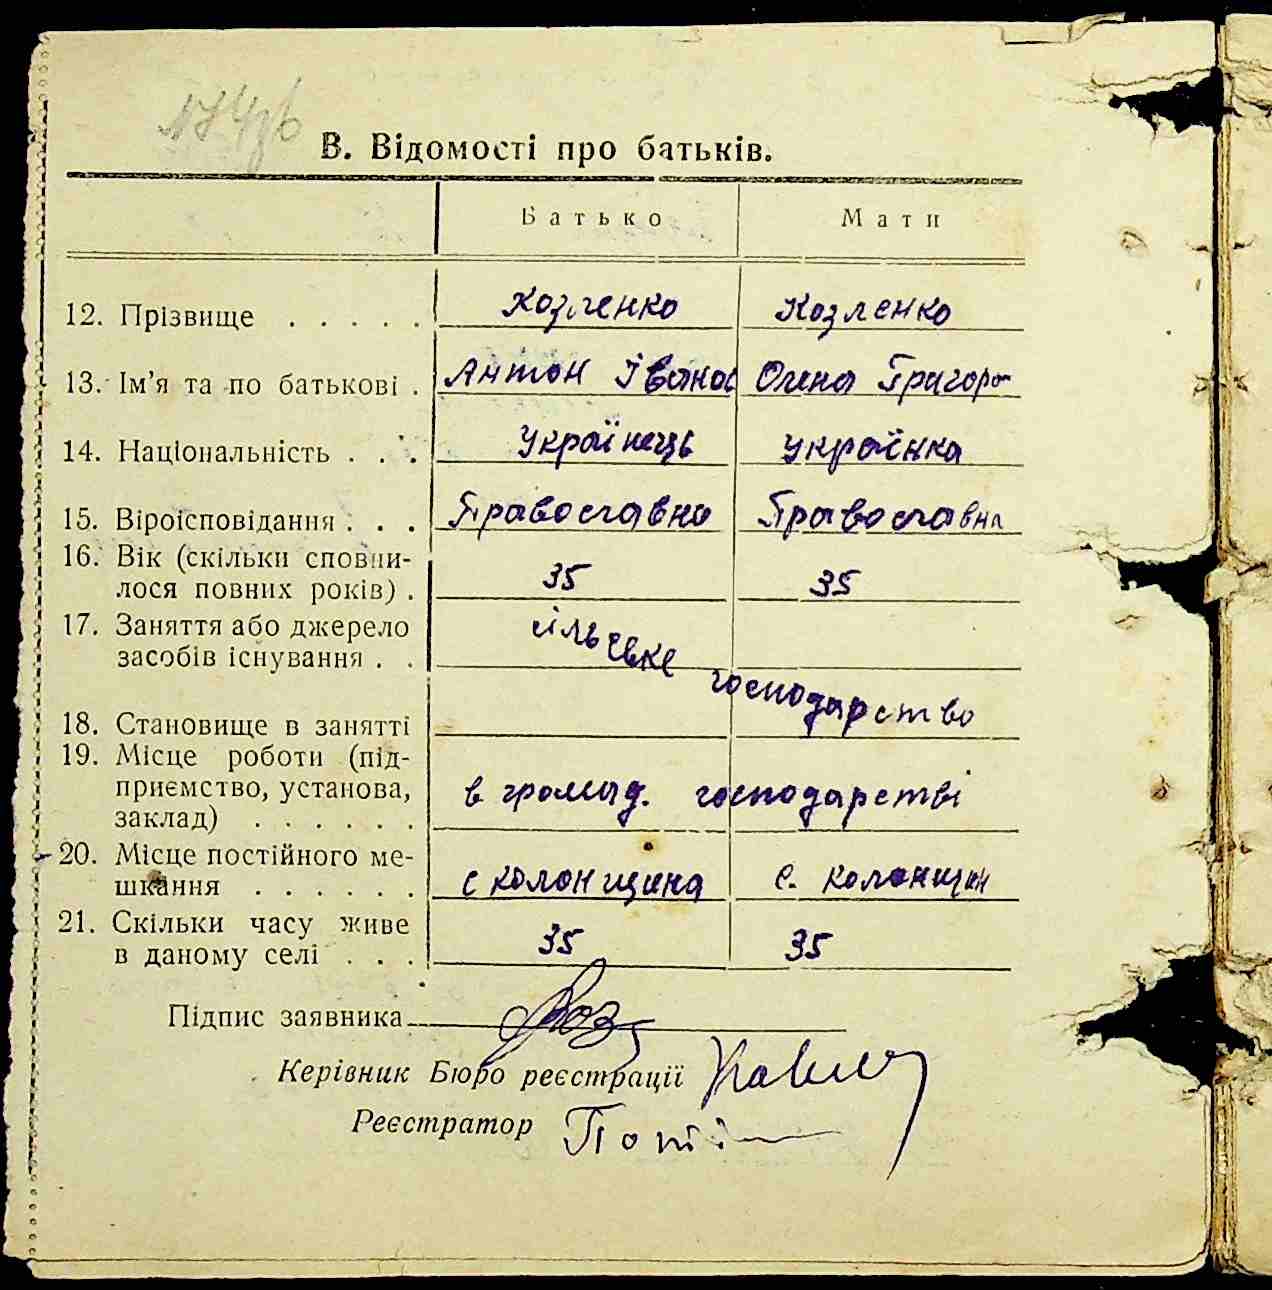 В. Відомості про батьків.
Батько Мати
12. Прізвище . . . . . Козленко Козленко
13. Ім'я та по батькові . Антон Іванов Олена Григоро
14. Національність . . . Українець українка
15. Віроісповідання . . . Православна Православна
16. Вік (скільки сповни-
лося повних років) . 35 35
17. Заняття або джерело
засобів існування . . сільське господарство
18. Становище в занятті
19. Місце роботи (під-
приємство, установа,
заклад) . . . . . . в громад. господарстві
20. Місце постійного ме-
шкання . . . . . . с колонщина с. колонщин
21. Скільки часу живе
в даному селі . . . 35 35
Підпис заявника Коз
Керівник Бюро реєстрації
Реєстратор